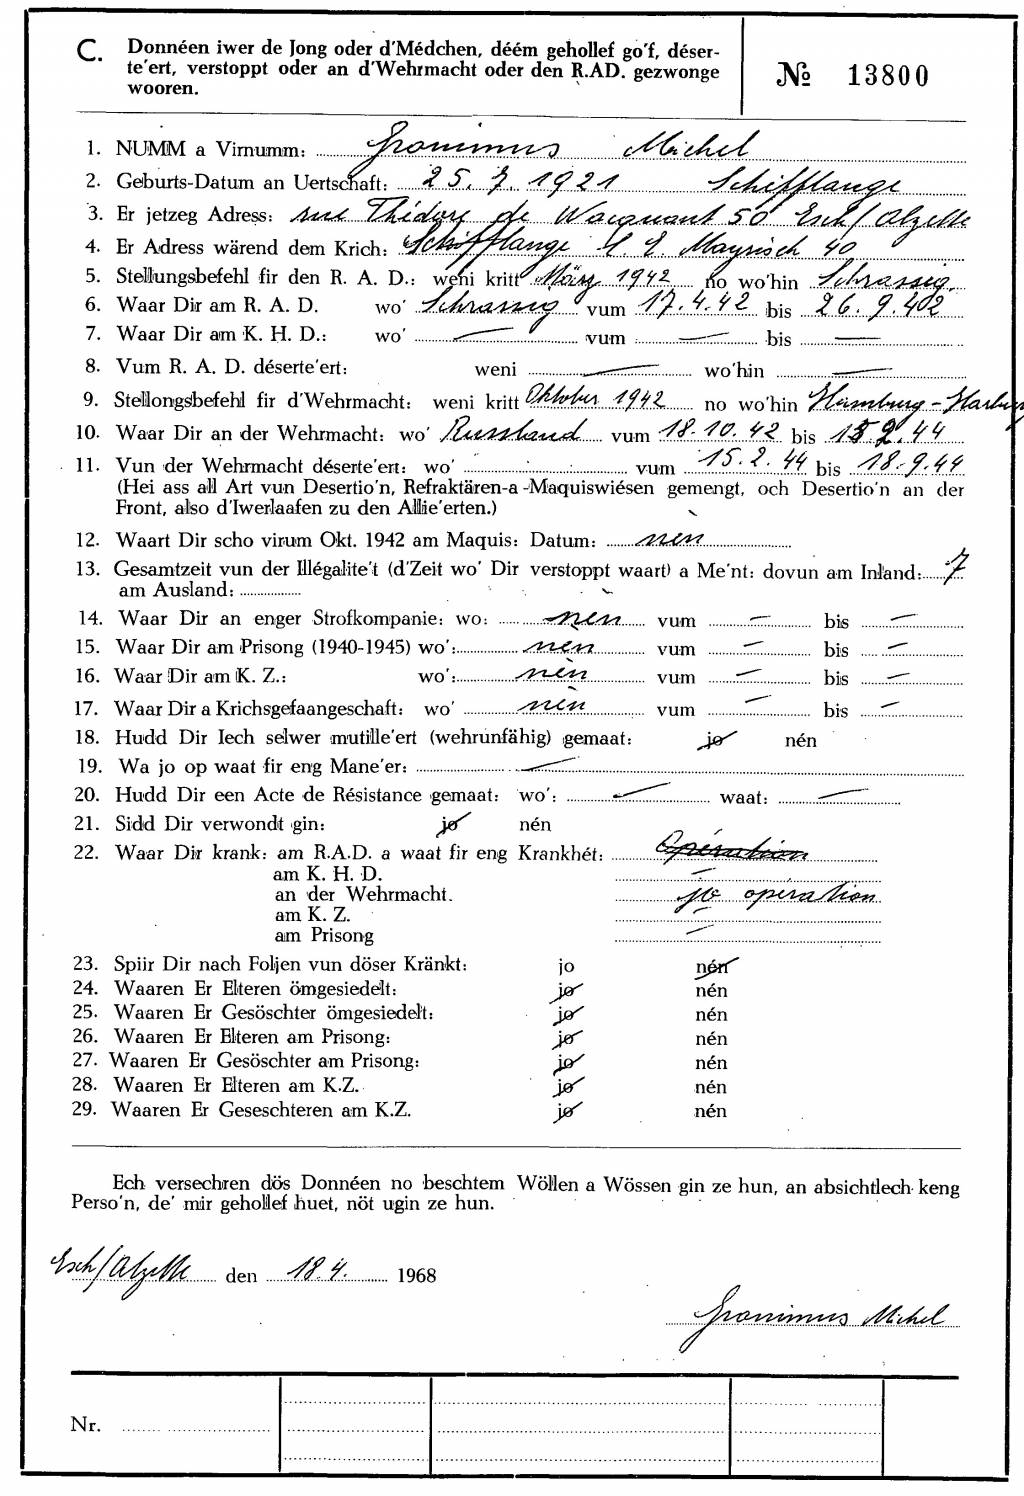 C. Donnéen iwer de Jong oder d'Médchen, déém gehollef go'f, déser-
te'ert, verstoppt oder an d'Wehrmacht oder den R.AD. gezwonge
wooren.
№ 13800
1. NUMM a Virnumm: Gronimus Michel
2. Geburts-Datum an Uertschaft: 25. 7. 1921 Schifflange
3. Er jetzeg Adress: rue Théodore de Wacquant 50 Esch/Alzette
4. Er Adress wärend dem Krich: Schifflange E. Mayrisch 40
5. Stellungsbefehl fir den R. A. D.: weni kritt März 1942 no wo'hin Schrassig
6. Waar Dir am R. A. D. wo' Schrassig vum 17.4.42 bis 26.9.42
7. Waar Dir am K. H. D.: wo' — vum — bis —
8. Vum R. A. D. déserte'ert: weni — wo'hin —
9. Stellongsbefehl fir d'Wehrmacht: weni kritt Oktober 1942 no wo'hin Hamburg-Harburg
10. Waar Dir an der Wehrmacht: wo' Russland vum 18.10.42 bis 15.2.44
11. Vun der Wehrmacht déserte'ert: wo' vum 15.2.44 bis 18.9.44
(Hei ass all Art vun Desertio'n, Refraktären-a-Maquiswiésen gemengt, och Desertio'n an der
Front, also d'Iwerlaafen zu den Allie'erten.)
12. Waart Dir scho virum Okt. 1942 am Maquis: Datum: nen
13. Gesamtzeit vun der Illégalite't (d'Zeit wo' Dir verstoppt waart) a Me'nt: dovun am Inland: 7
am Ausland:
14. Waar Dir an enger Strofkompanie: wo: nen vum — bis —
15. Waar Dir am Prisong (1940-1945) wo': nen vum — bis —
16. Waar Dir am K. Z.: wo': nèn vum — bis —
17. Waar Dir a Krichsgefaangeschaft: wo' nèn vum — bis —
18. Hudd Dir Iech selwer mutille'ert (wehrunfähig) gemaat: jo nén
19. Wa jo op waat fir eng Mane'er: —
20. Hudd Dir een Acte de Résistance gemaat: wo': — waat: —
21. Sidd Dir verwondt gin: jo nén
22. Waar Dir krank: am R.A.D. a waat fir eng Krankhét: Opération
am K. H. D. —
an der Wehrmacht. jo opération
am K. Z. —
am Prisong —
23. Spiir Dir nach Foljen vun döser Kränkt: jo nén
24. Waaren Er Elteren ömgesiedelt: jo nén
25. Waaren Er Gesöschter ömgesiedelt: jo nén
26. Waaren Er Elteren am Prisong: jo nén
27. Waaren Er Gesöschter am Prisong: jo nén
28. Waaren Er Elteren am K.Z. jo nén
29. Waaren Er Geseschteren am K.Z. jo nén
Ech versechren dös Donnéen no beschtem Wöllen a Wössen gin ze hun, an absichtlech keng
Perso'n, de' mir gehollef huet, nöt ugin ze hun.
Esch/Alzette den 18.4. 1968
Gronimus Michel
Nr.